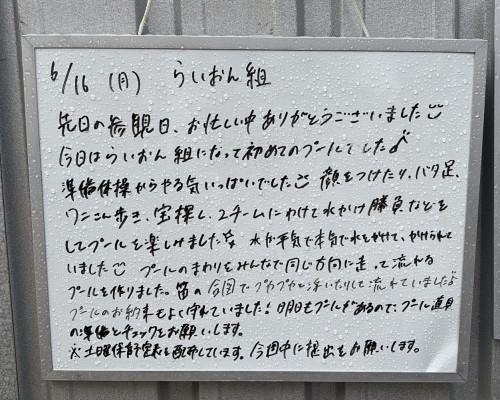 6/16 (月) らいおん組
先日の参観日、お忙しい中ありがとうございました
今日はらいおん組になって初めてのプールでした♪
準備体操からやる気いっぱいでした 顔をつけたり、バタ足、
ワニさん歩き、宝探し、2チームにわけて水かけ勝負などを
してプールを楽しみました 水が平気で本気で水をかけて、かけられて
いました プールのまわりをみんなで同じ方向に走って流れる
プールを作りました。笛の合図でプカプカと浮いたりして流れていました♪
プールのお約束もよく守れていました!明日もプールがあるので、プール道具
の準備とチェックをお願いします。
※土曜保育予定表を配布しています。今週中に提出をお願いします。